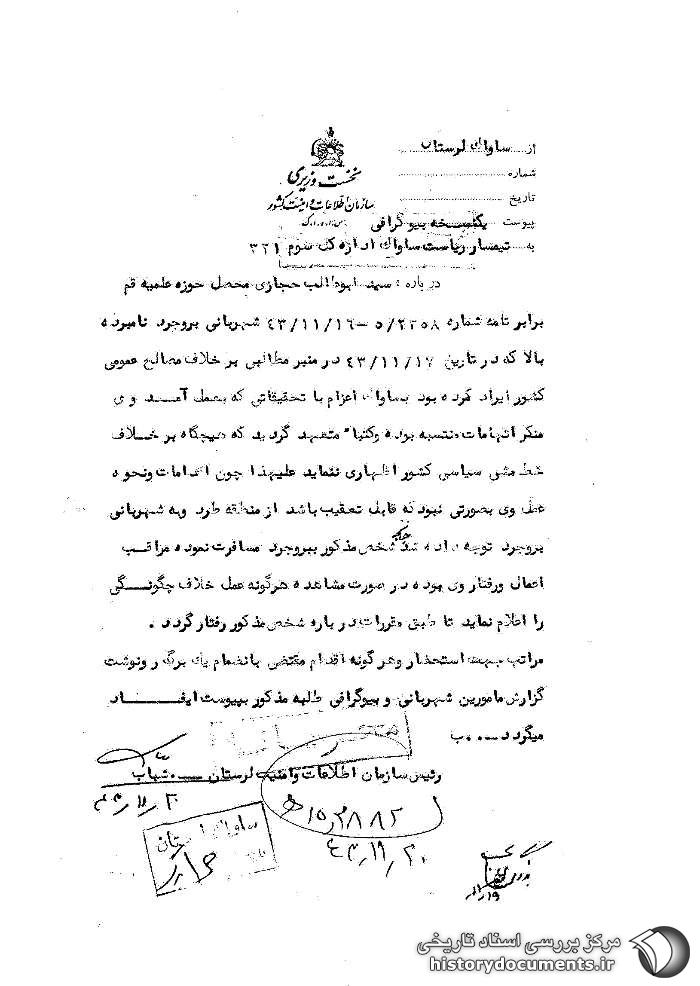 از ساواك لرستان
شماره
تاریخ
پیوست یکنسخه بیوگرافی
به تیمسار ریاست ساواك اداره کل سوم ۳۲۱
نخست وزیری
سازمان اطلاعات و امنیت کشور
درباره : سید ابوطالب حجازی محصل حوزه علمیه قم
برابر نامه شماره ۵/۲۲۵۸-۴۳/۱۱/۱۶ شهربانی بروجرد نامبرده
بالا که در تاریخ ۴۳/۱۱/۱۷ در منبر مطالبی بر خلاف مصالح عمومی
کشور ایراد کرده بود بساواك اعزام با تحقیقاتی که بعمل آمد وی
منکر اتهامات منتسبه بوده وکتبا" متعهد گردید که هیچگاه بر خلاف
خط مشی سیاسی کشور اظهاری ننماید علیهذا چون اقدامات ونحوه
عمل وی بصورتی نبود که قابل تعقیب باشد از منطقه طرد وبه شهربانی
بروجرد توجه داده شد چنانچه شخص مذکور ببروجرد مسافرت نموده مراقب
اعمال ورفتار وی بوده در صورت مشاهده هرگونه عمل خلاف چگونگی
را اعلام نماید تا طبق مقررات درباره شخص مذکور رفتار گردد .
مراتب جهت استحضار وهر گونه اقدام مقتضی بانضمام یك برگ رونوشت
گزارش مامورین شهربانی و بیوگرافی طلبه مذکور بپیوست ایفاد
میگردد ....ب
رئیس سازمان اطلاعات وامنیت لرستان ... شهاب
۴۳/۱۱/۲۰
۱۵۳۸۸۲
۴۳/۱۱/۲۰
ساواك لرستان
مرکز بررسی اسناد تاریخی
historydocuments.ir